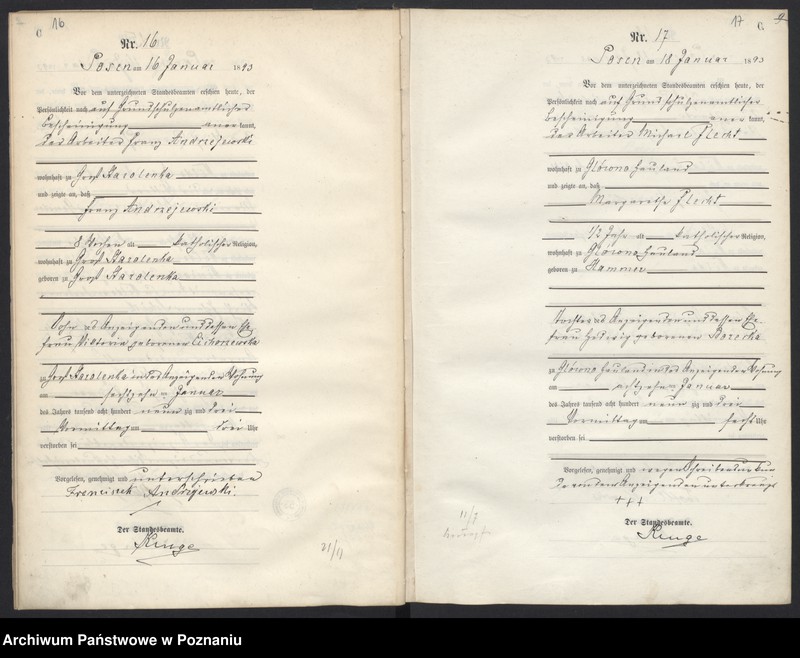 C 16
Nr. 16
Posen am 16 Januar 1893
Vor dem unterzeichneten Standesbeamten erschien heute, der
Persönlichkeit nach auf Grund schutzenamtlicher
Bescheinigung aner kannt,
der Arbeiter Franz Andrzejewski
wohnhaft zu Groß Starolenka
und zeigte an, daß
Franz Andrzejewski
8 Wochen alt katholischer Religion,
wohnhaft zu Groß Starolenka
geboren zu Groß Starolenka
Sohn des Anzeigenden und dessen Ehe-
frau Viktoria geborenen Cichoszewska
zu Groß Starolenka in des Anzeigenden Wohnung
am sechzehnten Januar
des Jahres tausend acht hundert neun zig und drei
Vormittag um drei Uhr
verstorben sei
Vorgelesen, genehmigt und unterschrieben
Frenciszek Andrzejewski.
Der Standesbeamte.
Runge
21/9
17 C. 9
Nr. 17
Posen am 18 Januar 1893
Vor dem unterzeichneten Standesbeamten erschien heute, der
Persönlichkeit nach auf Grund schutzenamtlicher
Bescheinigung aner kannt,
der Arbeiter Michael Flecht
wohnhaft zu Glówno Hauland
und zeigte an, daß
Margarethe Flecht
1/2 Jahr alt katholischer Religion,
wohnhaft zu Glówno Hauland
geboren zu Hammer
Tochter des Anzeigenden und dessen Ehe-
frau Hedwig geborenen
zu Glówno Hauland in des Anzeigenden Wohnung
am achtzehnten Januar
des Jahres tausend acht hundert neun zig und drei
Vormittag um sechs Uhr
verstorben sei
Vorgelesen, genehmigt und wegen Schreibensunkun
de von dem Anzeigenden unterkreuzt
+++
Der Standesbeamte.
Runge
Archiwum Państwowe w Poznaniu